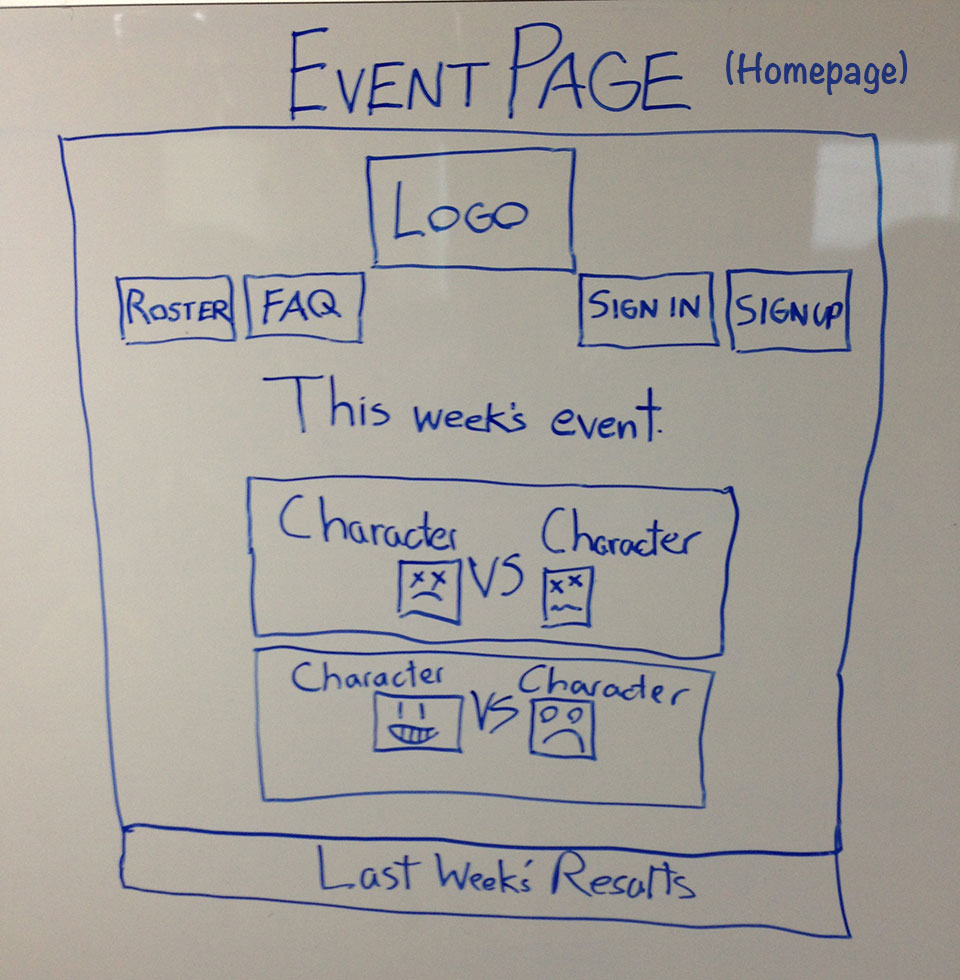 EVENT PAGE (Homepage)
LOGO
ROSTER FAQ SIGN IN SIGN UP
This week's event.
Character VS Character
Character VS Character
Last Week's Results